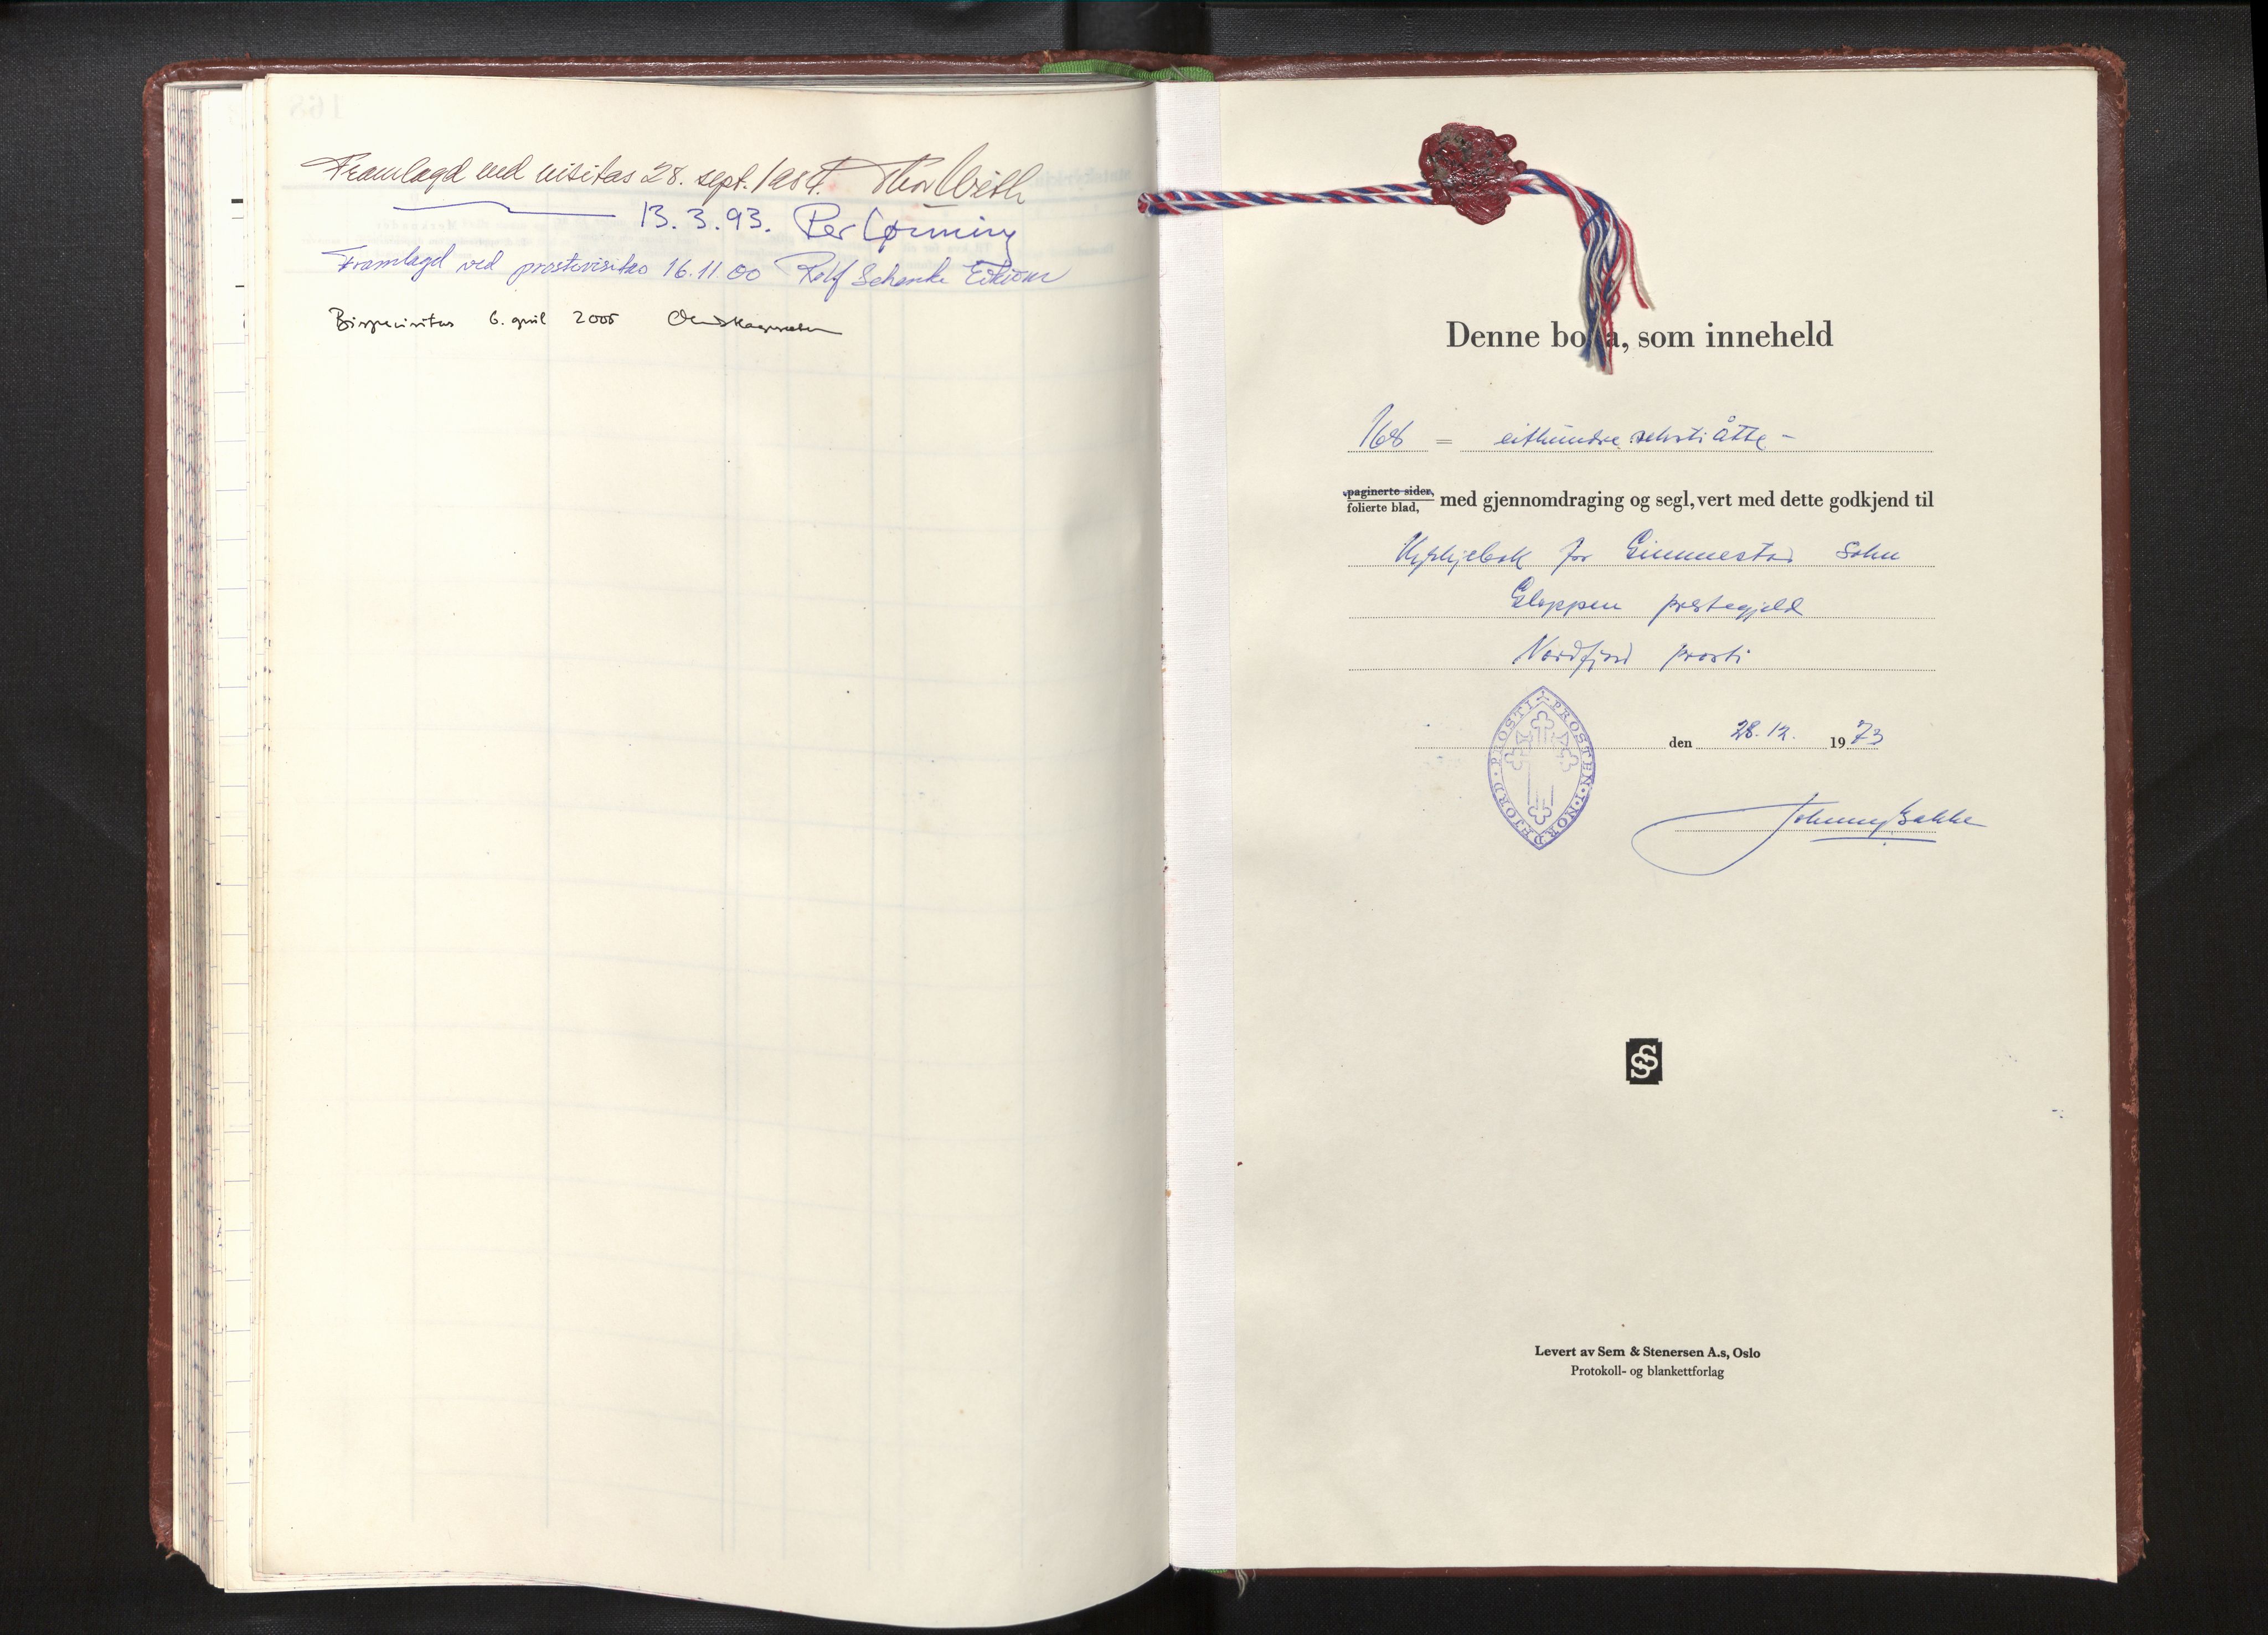 Framlagd ved visitas 28. sept. 1984. Thor With
13.3.93. Per Lønning
Framlagd ved prostevisitas 16.11.00 Rolf Schanke Eikum
Bispevisitas 6. april 2005
Denne boka, som inneheld
168 = eithundre sekstiåtte -
paginerte sider,
folierte blad, med gjennomdraging og segl, vert med dette godkjend til
Kyrkjebok for Gimmestad Sokn
Gloppen prestegjeld
Nordfjord prosti
PROSTEN I NORDFJORD PROSTI
den 28.12. 1973
Johnny Bakke
SS
Levert av Sem & Stenersen A.s, Oslo
Protokoll- og blankettforlag